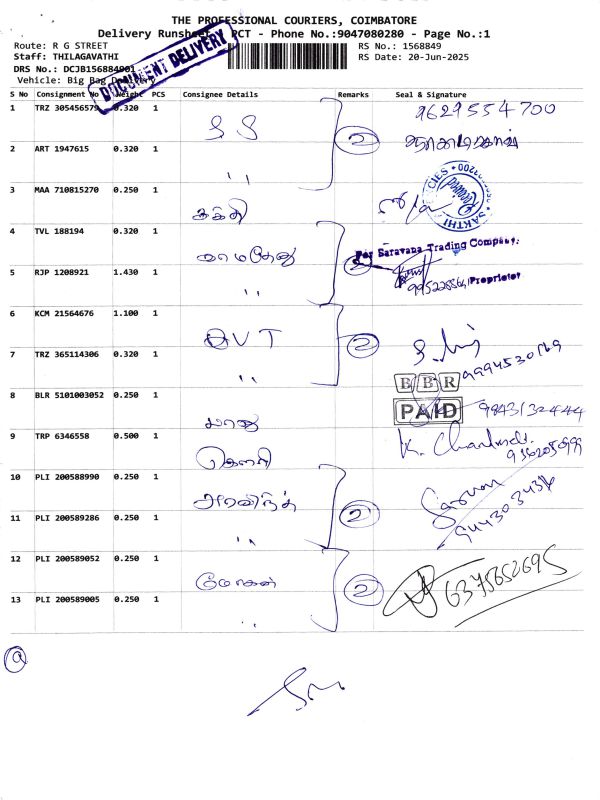 THE PROFESSIONAL COURIERS, COIMBATORE
Delivery Runsheet PCT - Phone No.:9047080280 - Page No.:1
Route: R G STREET
RS No.: 1568849
Staff: THILAGAVATHI
RS Date: 20-Jun-2025
DRS No.: DCJB156884901
Vehicle: Big Bag Delivery
DOCUMENT DELIVERY
S No Consignment No Weight PCS Consignee Details Remarks Seal & Signature
1 TRZ 305456579 0.320 1 S S 2 9629554700
2 ART 1947615 0.320 1 ,,
3 MAA 710815270 0.250 1 சக்தி
SAKTHI
4 TVL 188194 0.320 1 காமதேனு 2 For Saravana Trading Company.
Proprietor
5 RJP 1208921 1.430 1 ,,
6 KCM 21564676 1.100 1 V T 2
7 TRZ 365114306 0.320 1 ,, 9994530169
BBR
8 BLR 5101003052 0.250 1 பானு PAID 9943132444
9 TRP 6346558 0.500 1 கௌரி K.
10 PLI 200588990 0.250 1 அரவிந்த் 2
11 PLI 200589286 0.250 1 ,,
12 PLI 200589052 0.250 1 மோகன் 2 6375652695
13 PLI 200589005 0.250 1 ,,